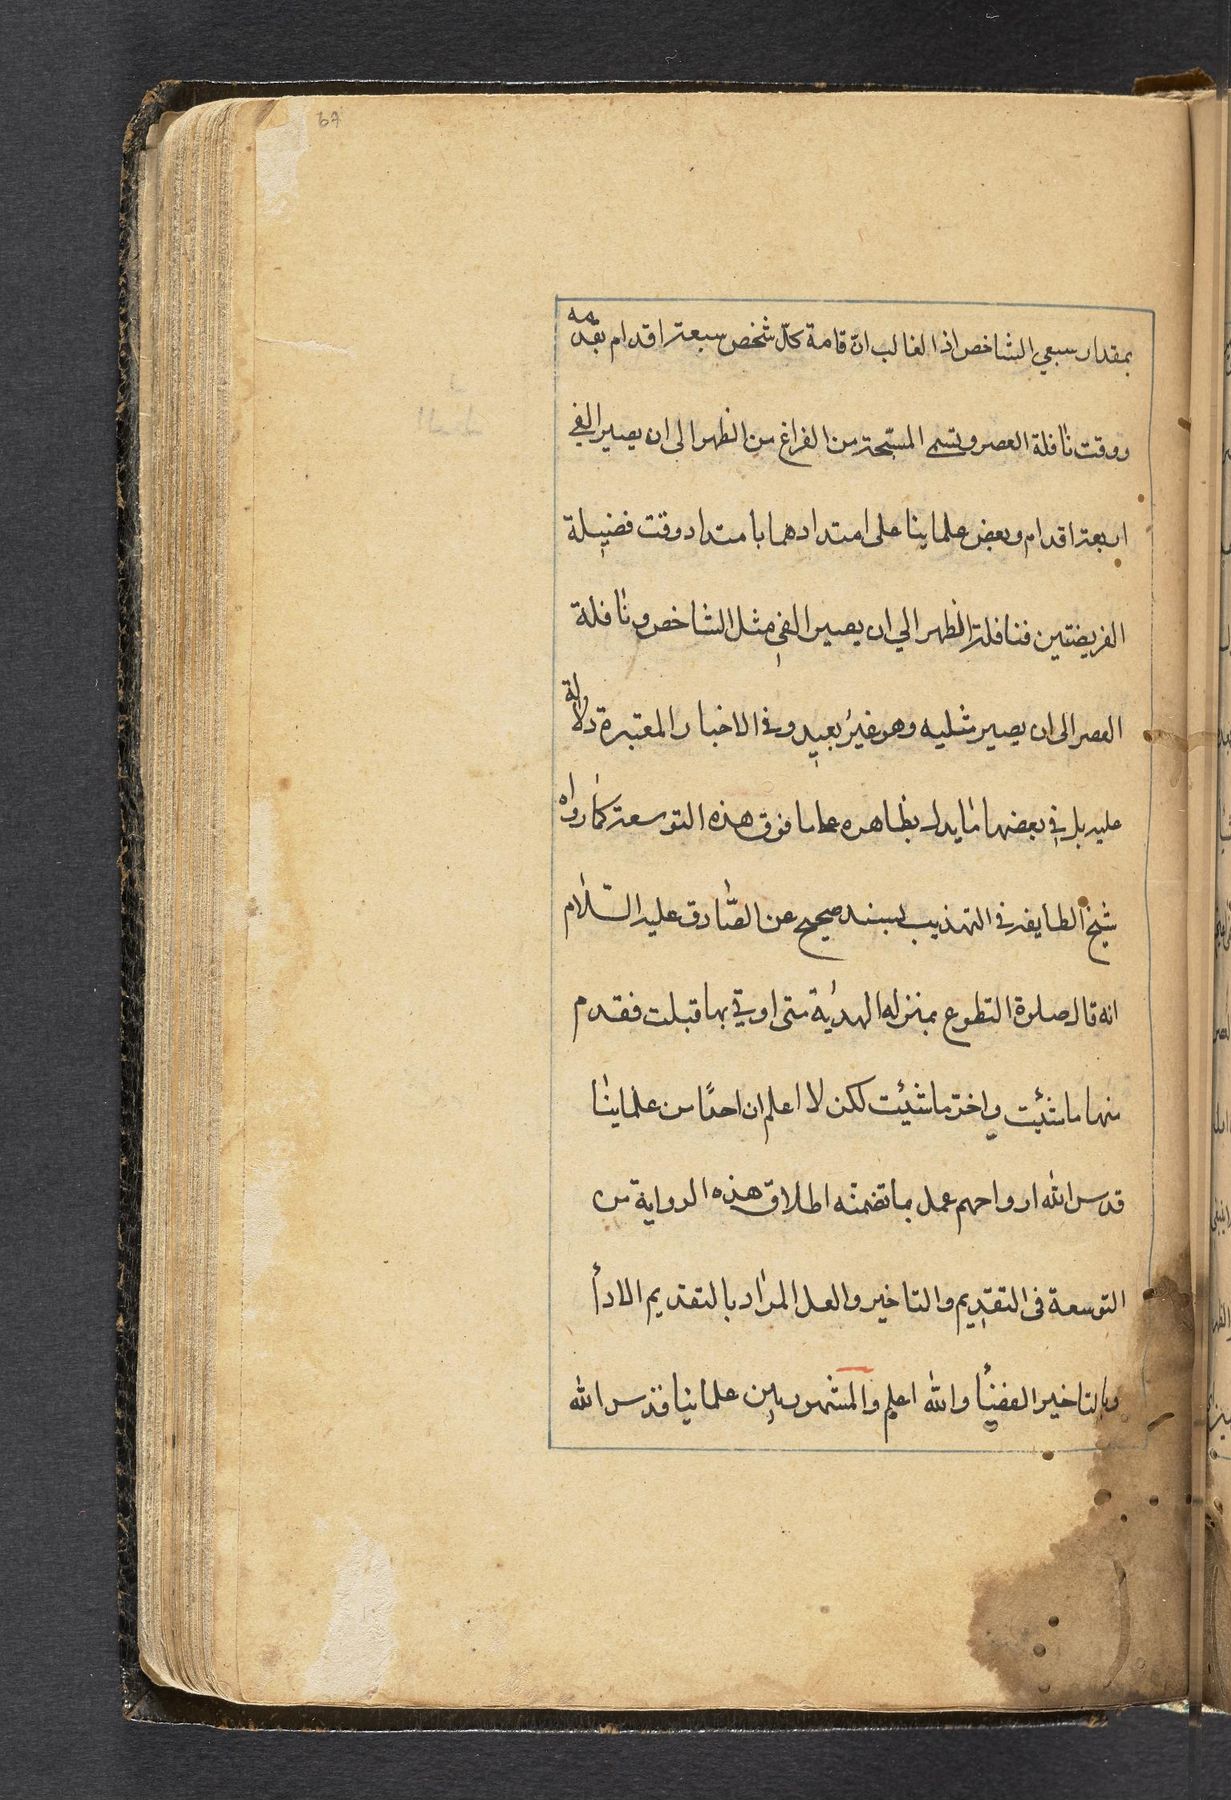 67
بمقدار سبعي الشاخص اذ الغالب انّ قامة كلّ شخص سبعة اقدام بقدمه
ووقت نافلة العصر وتسمى المسبّحة من الفراغ من الظهر الى ان يصير الفي
اربعة اقدام وبعض علماينا على امتدادهما بامتداد وقت فضيلة
الفريضتين فنافلة الظهر الي ان يصير الفي مثل الشاخص ونافلة
العصر الى ان يصير مثليه وهو غيرُ بعيد وفي الاخبار المعتبرة دلالة
عليه بل في بعضها ما يدل بظاهره علىما فوق هذه التوسعة كما رواه
شيخ الطايفه في التهذيب بسند صحيح عن الصّادق عليه السّلام
انه قال صلوة التطوع بمنزله الهديّة متى اوتي بها قبلت فقدم
منها ما شئت واخّر ما شئت لكن لا اعلم ان احدًا من علماينا
قدس الله ارواحهم عمل بما تضمنه اطلاق هذه الرواية من
التوسعة في التقديم والتاخير ولعل المراد بالتقديم الادأ
وبالتاخير القضأ والله اعلم والمشهور بين علمائنا قدس الله